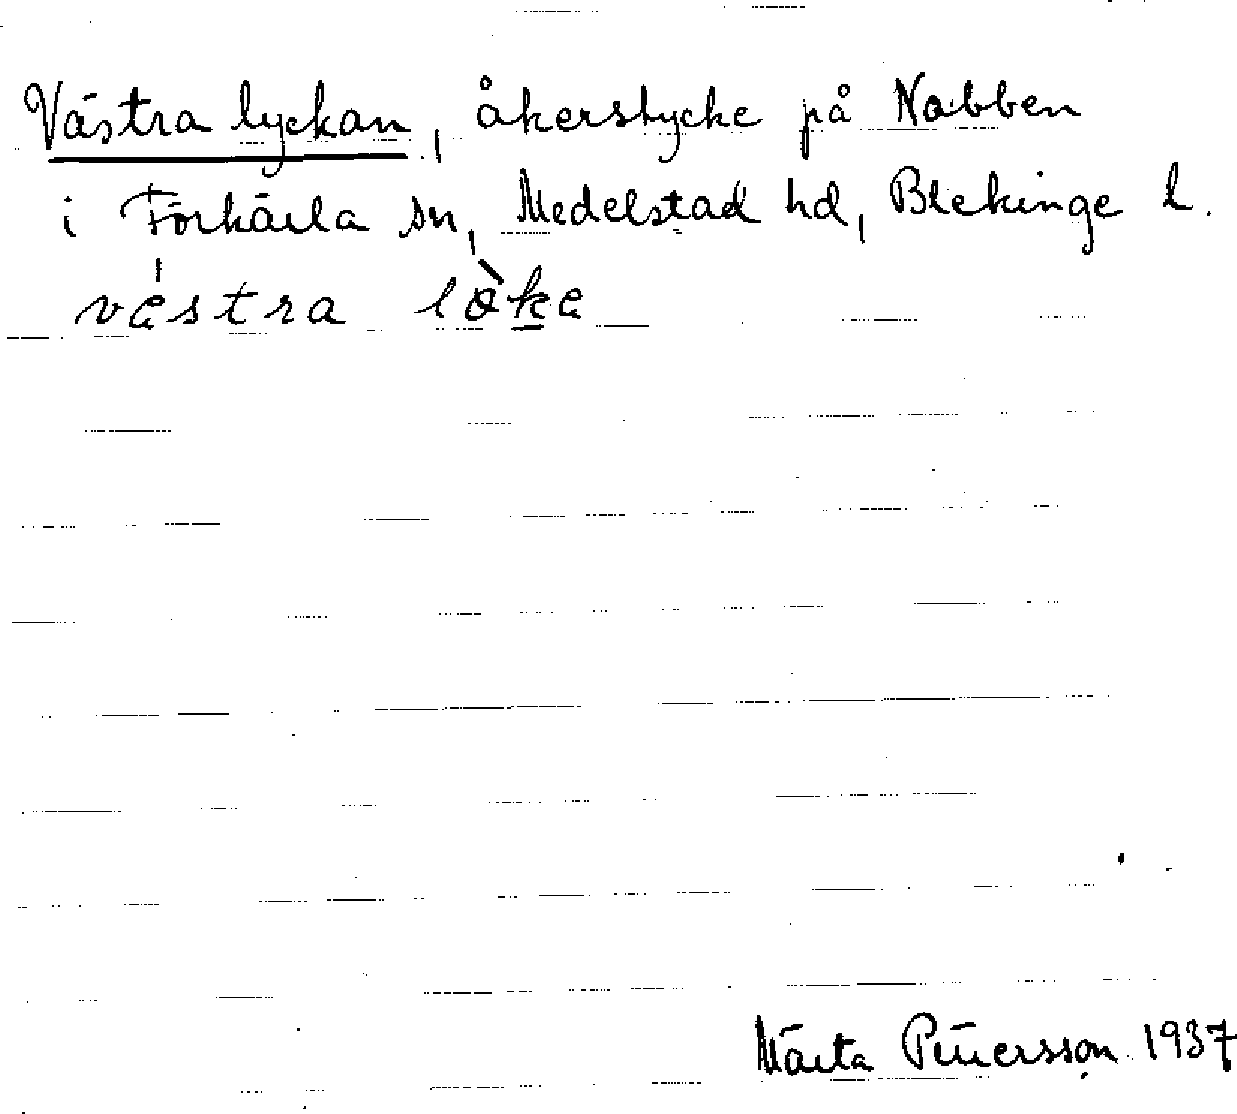 Västra lyckan, åkerstycke på Nabben
i Förkärla sn, Medelstad hd, Blekinge l.
västra
Märta Pettersson 1937